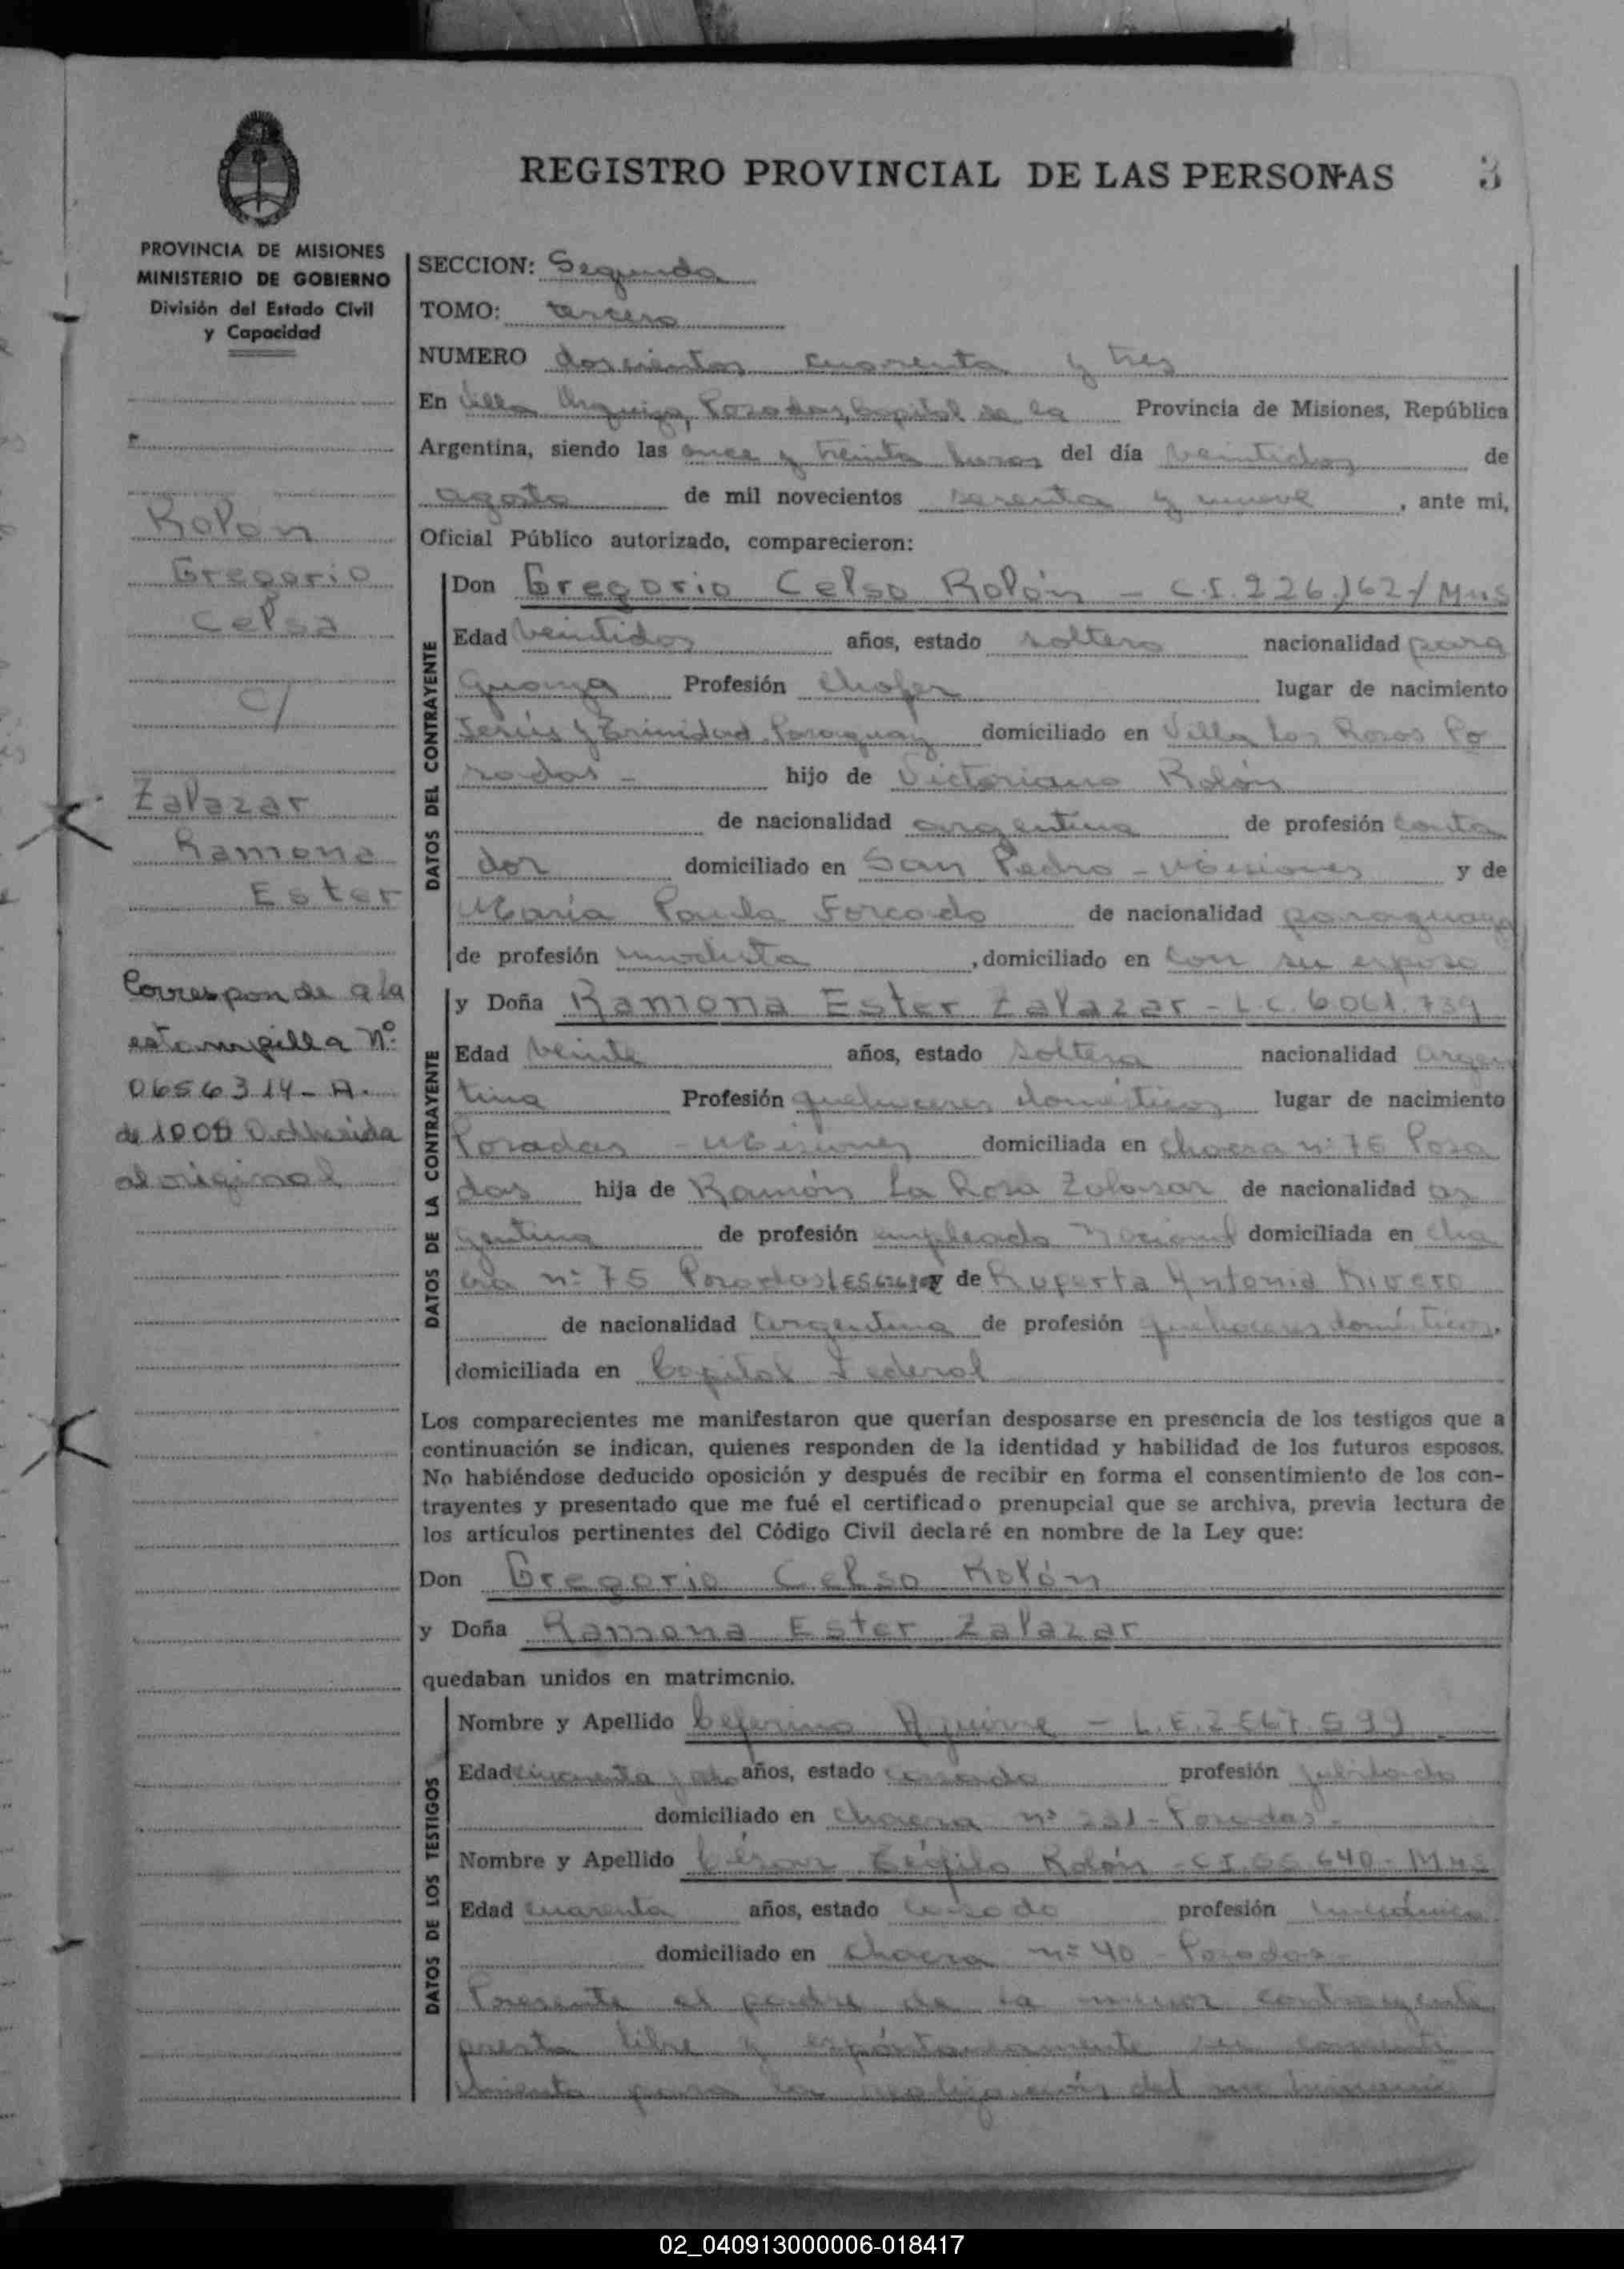 REGISTRO PROVINCIAL DE LAS PERSONAS
3
PROVINCIA DE MISIONES
MINISTERIO DE GOBIERNO
División del Estado Civil
y Capacidad
Rolon
Gregorio
Celso
c/
Zalazar
Ramona
Ester
Corresponde a la
estampilla Nº
0656314-A.
de 100$ Adherida
al original
SECCION: Segunda
TOMO: tercero
NUMERO doscientos cuarenta y tres
En Villa Urquiza, Posadas, Capital de la Provincia de Misiones, República
Argentina, siendo las once y treinta horas del día veintidos de
agosto de mil novecientos sesenta y nueve, ante mi,
Oficial Público autorizado, comparecieron:
DATOS DEL CONTRAYENTE
Don Gregorio Celso Rolón - C.I. 226.162/Mns
Edad veintidos años, estado soltero nacionalidad para
guaya Profesión Chofer lugar de nacimiento
Jesús y Trinidad Paraguay domiciliado en Villa Las Rosas Po
sadas - hijo de Victoriano Rolón
de nacionalidad argentina de profesión conta
dor domiciliado en San Pedro - Misiones y de
María Paula Forcado de nacionalidad paraguaya
de profesión modista, domiciliado en con su esposo
DATOS DE LA CONTRAYENTE
y Doña Ramona Ester Zalazar - L.C. 6.061.739
Edad veinte años, estado soltera nacionalidad argen
tina Profesión quehaceres domésticos lugar de nacimiento
Posadas - Misiones domiciliada en chacra nº 75 Posa
das hija de Ramón La Rosa Zalazar de nacionalidad ar
gentina de profesión empleado nacional domiciliada en cha
cra nº 75 Posadas y de Ruperta Antonia Rivero
de nacionalidad Argentina de profesión quehaceres domésticos,
domiciliada en Capital Federal
Los comparecientes me manifestaron que querían desposarse en presencia de los testigos que a
continuación se indican, quienes responden de la identidad y habilidad de los futuros esposos.
No habiéndose deducido oposición y después de recibir en forma el consentimiento de los con-
trayentes y presentado que me fué el certificado prenupcial que se archiva, previa lectura de
los artículos pertinentes del Código Civil declaré en nombre de la Ley que:
Don Gregorio Celso Rolón
y Doña Ramona Ester Zalazar
quedaban unidos en matrimonio.
DATOS DE LOS TESTIGOS
Nombre y Apellido Ceferino Aguirre - L.E. 2567599
Edad cincuenta y años, estado casado profesión jubilado
domiciliado en chacra nº 221 - Posadas -
Nombre y Apellido César Teófilo Rolón - C.I. 55.640 - Mns
Edad cuarenta años, estado casado profesión mecánico
domiciliado en chacra nº 40 - Posadas -
Presente el padre de la menor contrayente
presta libre y espontaneamente su consenti
miento para la realización del matrimonio
02_040913000006-018417